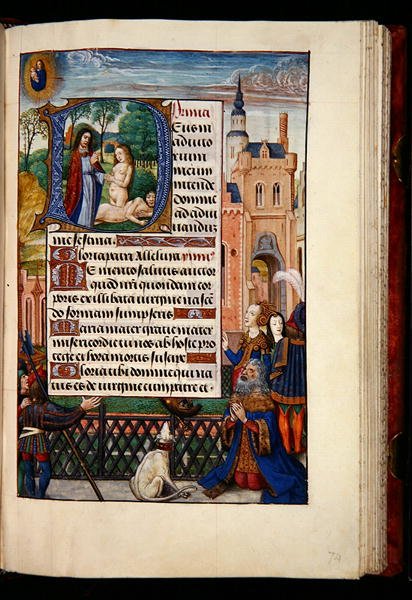 Prima
Deus in
adiuto
rium
meum
intende
domine
ad adiu
uandu
me festina.
Gloria patri Alleluia. ymn
Memento salutis auctor
quod nri quondam cor
poris ex illibata uirgine nasce
do formam sumpseris
Maria mater gratie mater
misericordie tu nos ab hoste pro
tege et hora mortis suscipe
Gloria tibi domine qui na
tus es de uirgine cum patre et
74